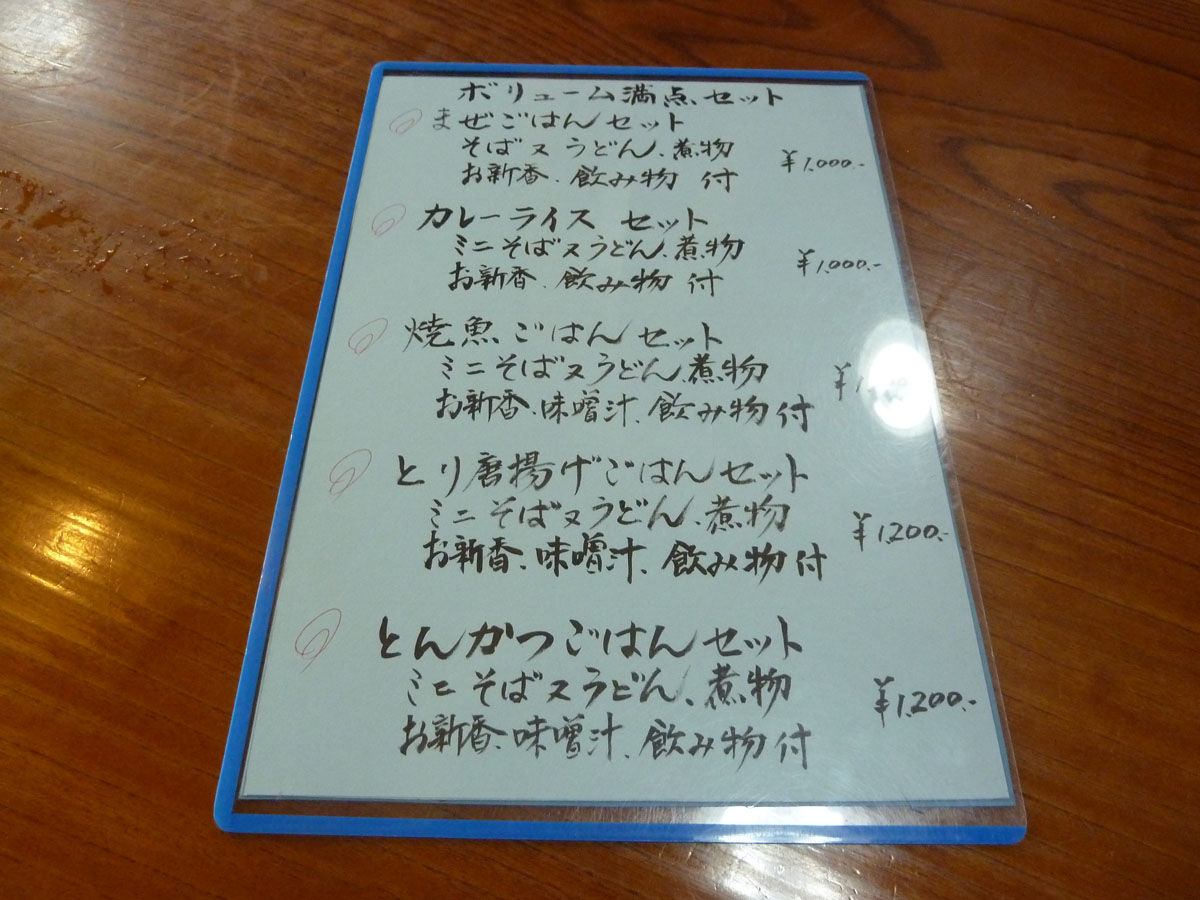 ボリューム満点セット
まぜごはんセット
そば又うどん、煮物
お新香、飲み物 付
¥1,000.-
カレーライス セット
ミニそば又うどん、煮物
お新香、飲み物 付
¥1,000.-
焼魚ごはんセット
ミニそば又うどん、煮物
お新香、味噌汁、飲み物付
とり唐揚げごはんセット
ミニそば又うどん、煮物
お新香、味噌汁、飲み物付
¥1,200.-
とんかつごはんセット
ミニそば又うどん、煮物
お新香、味噌汁、飲み物付
¥1,200.-